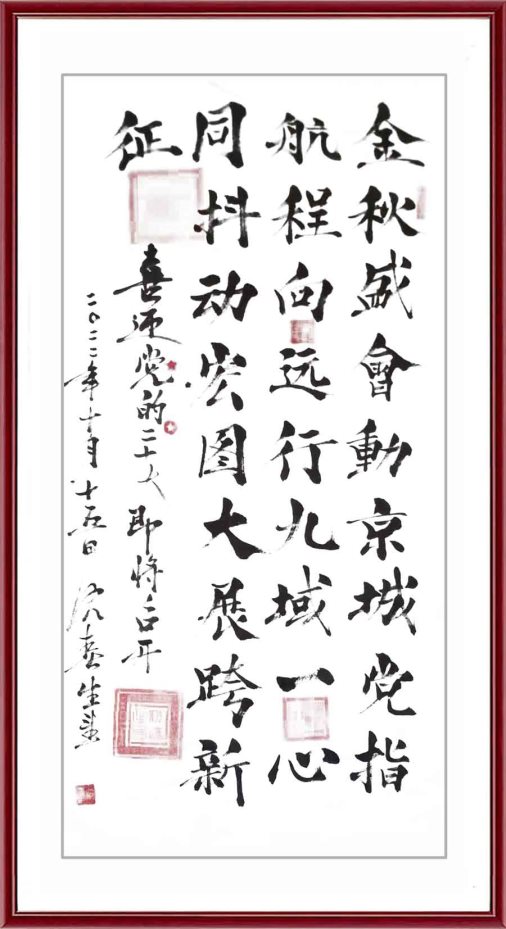 金秋盛會動京城党指
航程向远行九域一心
同抖动宏图大展跨新
征
喜迎党的二十大即将召开
二〇二二年十月十五日 春生